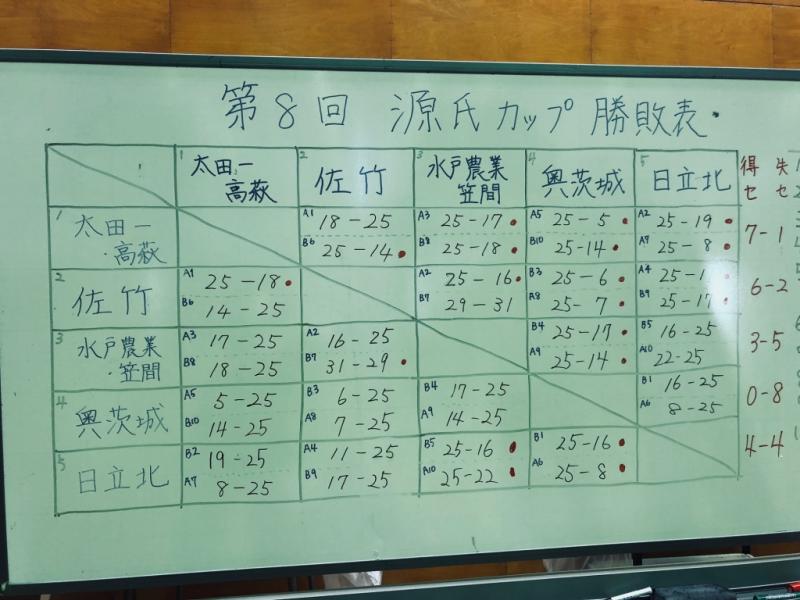 第8回 源氏カップ 勝敗表
1 太田一高萩 2 佐竹 3 水戸農業笠間 4 奥茨城 5 日立北 得セ 失セ
1 太田一・高萩 A1 18-25 A3 25-17• A5 25-5• A2 25-19• 7-1
B6 25-14• B8 25-18• B10 25-14• A7 25-8•
2 佐竹 A1 25-18• A2 25-16• B3 25-6• A4 25-1 6-2
B6 14-25 B7 29-31 A8 25-7• B9 25-17•
3 水戸農業・笠間 A3 17-25 A2 16-25 B4 25-17• B5 16-25 3-5
B8 18-25 B7 31-29• A9 25-14• A10 22-25
4 奥茨城 A5 5-25 B3 6-25 B4 17-25 B1 16-25 0-8
B10 14-25 A8 7-25 A9 14-25 A6 8-25
5 日立北 B2 19-25 A4 11-25 B5 25-16• B1 25-16• 4-4
A7 8-25 B9 17-25 A10 25-22• A6 25-8•